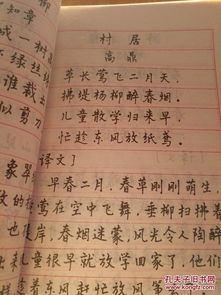 知章
成一树高
下绿丝绦
谁裁出
似剪刀
村居
高鼎
草长莺飞二月天,
拂堤杨柳醉春烟.
儿童散学归来早,
忙趁东风放纸鸢.
译文]
早春二月,春草刚刚萌生
莺在空中飞舞,垂柳扫拂着
岸,春烟迷蒙,风光令人陶醉
儿童很早就放学回家了,他们
东风赶忙放风筝
象翠
的
也